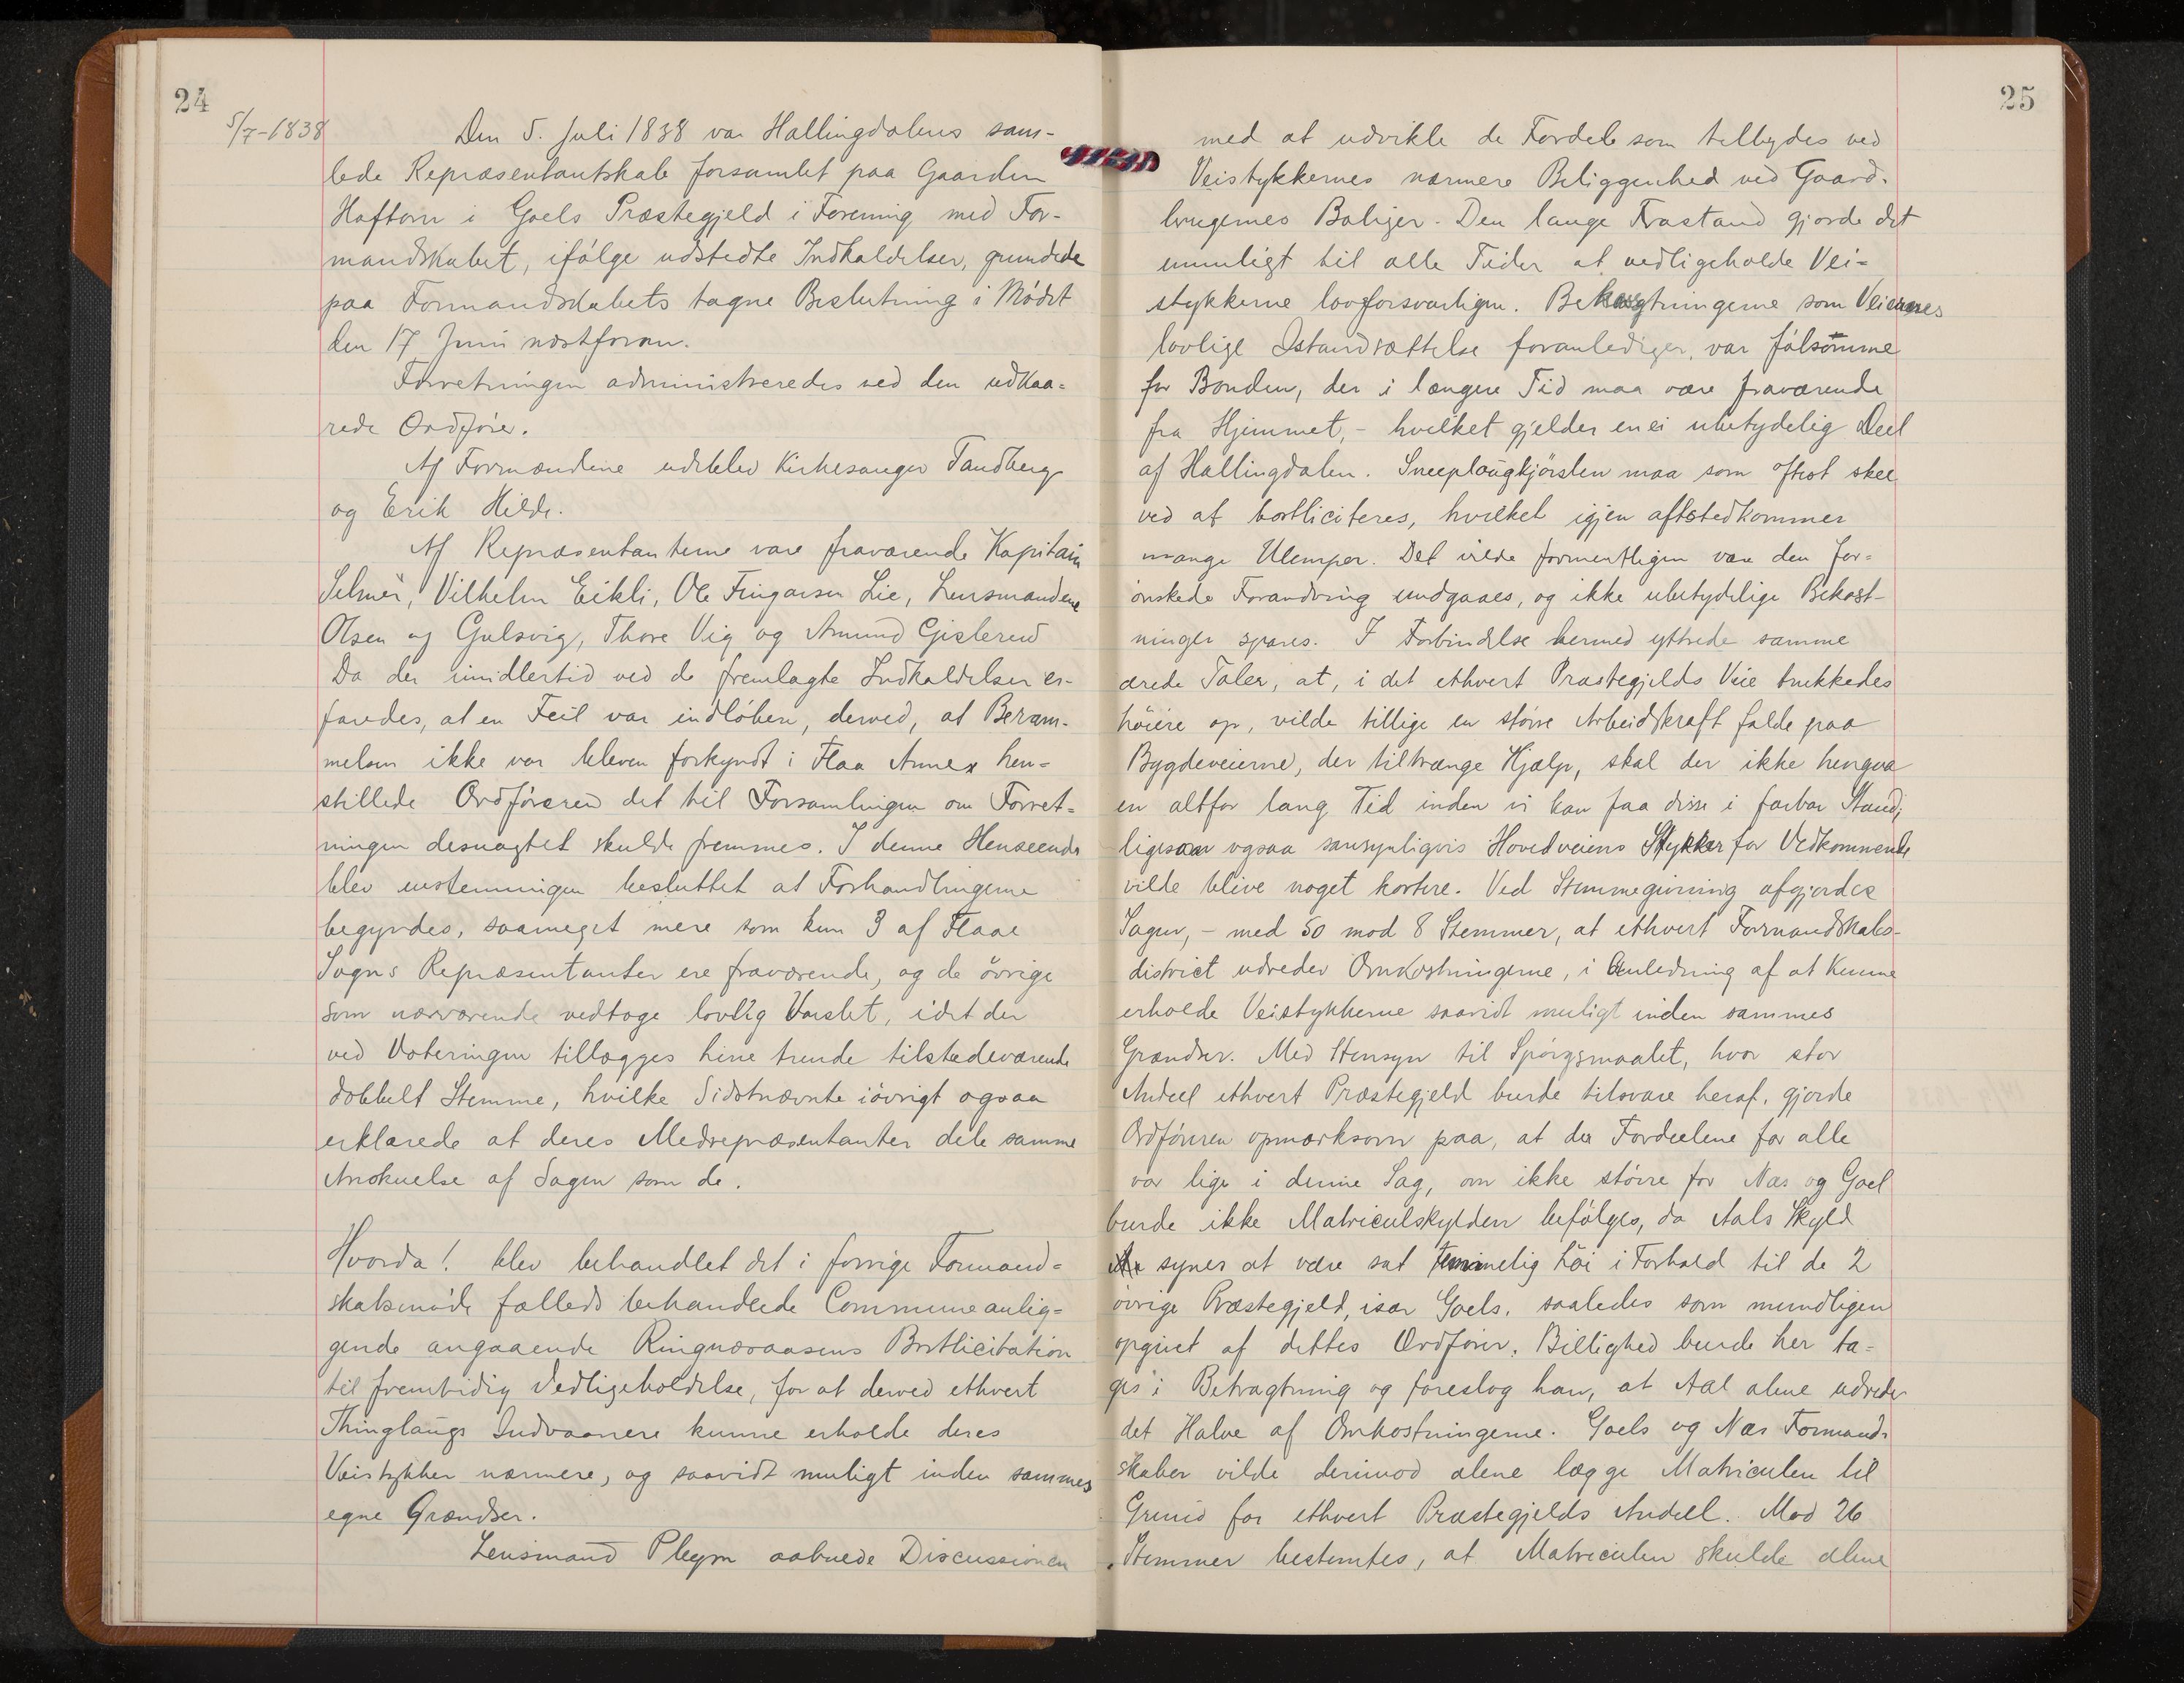 24
5/7-1838
Den 5. Juli 1838 var Hallingdalens sam-
lede Repræsentantskab forsamlet paa Gaarden
Haftorn i Goels Præstegjeld i Forening med For-
mandskabet, ifölge udstedte Indkaldelser, grundede
paa Formandsdabets tagne Beslutning i Mödet
den 17 Juni næstforan.
Forretningen administreredes ved den udkaa-
rede Ordförer.
Af Formændene udeblev Kirkesanger Tandberg
og Erik Hilde.
Af Repræsentanterne vare fraværende Kapitain
Selmer, Vilhelm Eikli, Ole Fingarsen Lie, Lensmandene
Olsen og Gulsvig, Thore Vig og Amund Gislerud
Da der imidlertid ved de fremlagte Indkaldelser er-
faredes, at en Feil var indlöben, derved, at Beram-
melsen ikke var bleven forkyndt i Flaa Annex hen-
stillede Ordföreren det til Forsamlingen om Forret-
ningen desuagtet skulde fremmes. I denne Henseende
blev enstemmigen besluttet at Forhandlingerne
begyndes, saameget mere som kun 3 af Flaae
Sogns Repræsentanter ere fraværende, og de övrige
som nærværende vedtoge lovlig Varslet, idet der
ved Voteringen tillægges hine trende tilstedeværende
dobbelt Stemme, hvilke Sidstnævnte iövrigt ogsaa
erklærede at deres Medrepræsentanter dele samme
Anskuelse af Sagen som de.
Hvorda! blev behandlet det i forrige Formand-
skabsmöde fælleds behandlede Communeanlig-
gende angaaende Ringneraasens Bortlicitation
til fremtidig Vedligeholdelse, for at derved ethvert
Thinglaugs Indvaanere kunne erholde deres
Veistykker nærmere, og saavidt muligt inden sammes
egne Grændser.
Lensmand Pleym aabnede Discussionen
25
med at udvikle de Fordele som tilbydes ved
Veistykkernes nærmere Beliggenhed ved Gaard-
brugernes Boliger. Den lange Frastand gjorde det
umuligt til alle Tider at vedligeholde Vei-
stykkerne lovforsvarligen. Bekosgtningerne som Veienes
lovlige Istandsættelse foranlediger, var fölsomme
for Bonden, der i længere Tid maa være fraværende
fra Hjemmet, - hvilket gjelder en ei ubetydelig Deel
af Hallingdalen. Sneeplougkjörslen maa som oftest skee
ved at bortliciteres, hvilket igjen afstedkommer
mange Ulemper. Det vilde formentligen ved den for-
önskede Forandring undgaaes, og ikke ubetydelige Bekost-
ninger spares. I Forbindelse hermed yttrede samme
ærede Taler, at, i det ethvert Præstegjelds Veie trækkedes
höiere op, vilde tillige en större Arbeidskraft falde paa
Bygdeveierne, der tiltrænge Hjælp, skal der ikke hengaa
en altfor lang Tid inden vi kan faa disse i farbar Stand;
ligesaa ogsaa sansynligvis Hovedveiens Stykker for Vedkommende
vilde blive noget kortere. Ved Stemmegivning afgjordes
Sagen, - med 50 mod 8 Stemmer, at ethvert Formandskabs-
district udreder Omkostningerne, i Anledning af at kunne
erholde Veistykkerne saavidt muligt inden sammes
Grændser. Med Hensyn til Spörgsmaalet, hvor stor
Andeel ethvert Præstegjeld burde tilsvare heraf, gjorde
Ordföreren opmærksom paa, at da Fordeelene for alle
var lige i denne Sag, om ikke större for Næs og Goel
burde ikke Matriculskylden befölges, da Aals Skyld
synes at være sat temmelig höi i Forhold til de 2
övrige Præstegjeld, især Goels, saaledes som mundligen
opgivet af dettes Ordförer. Billighed burde her ta-
ges i Betragtning og foreslog han, at Aal alene udreder
det Halve af Omkostningerne. Goels og Næs Formand-
skaber vilde derimod alene lægge Matriculen til
Grund for ethvert Præstegjelds Andeel. Mod 26
Stemmer bestemtes, at Matriculen skulde alene